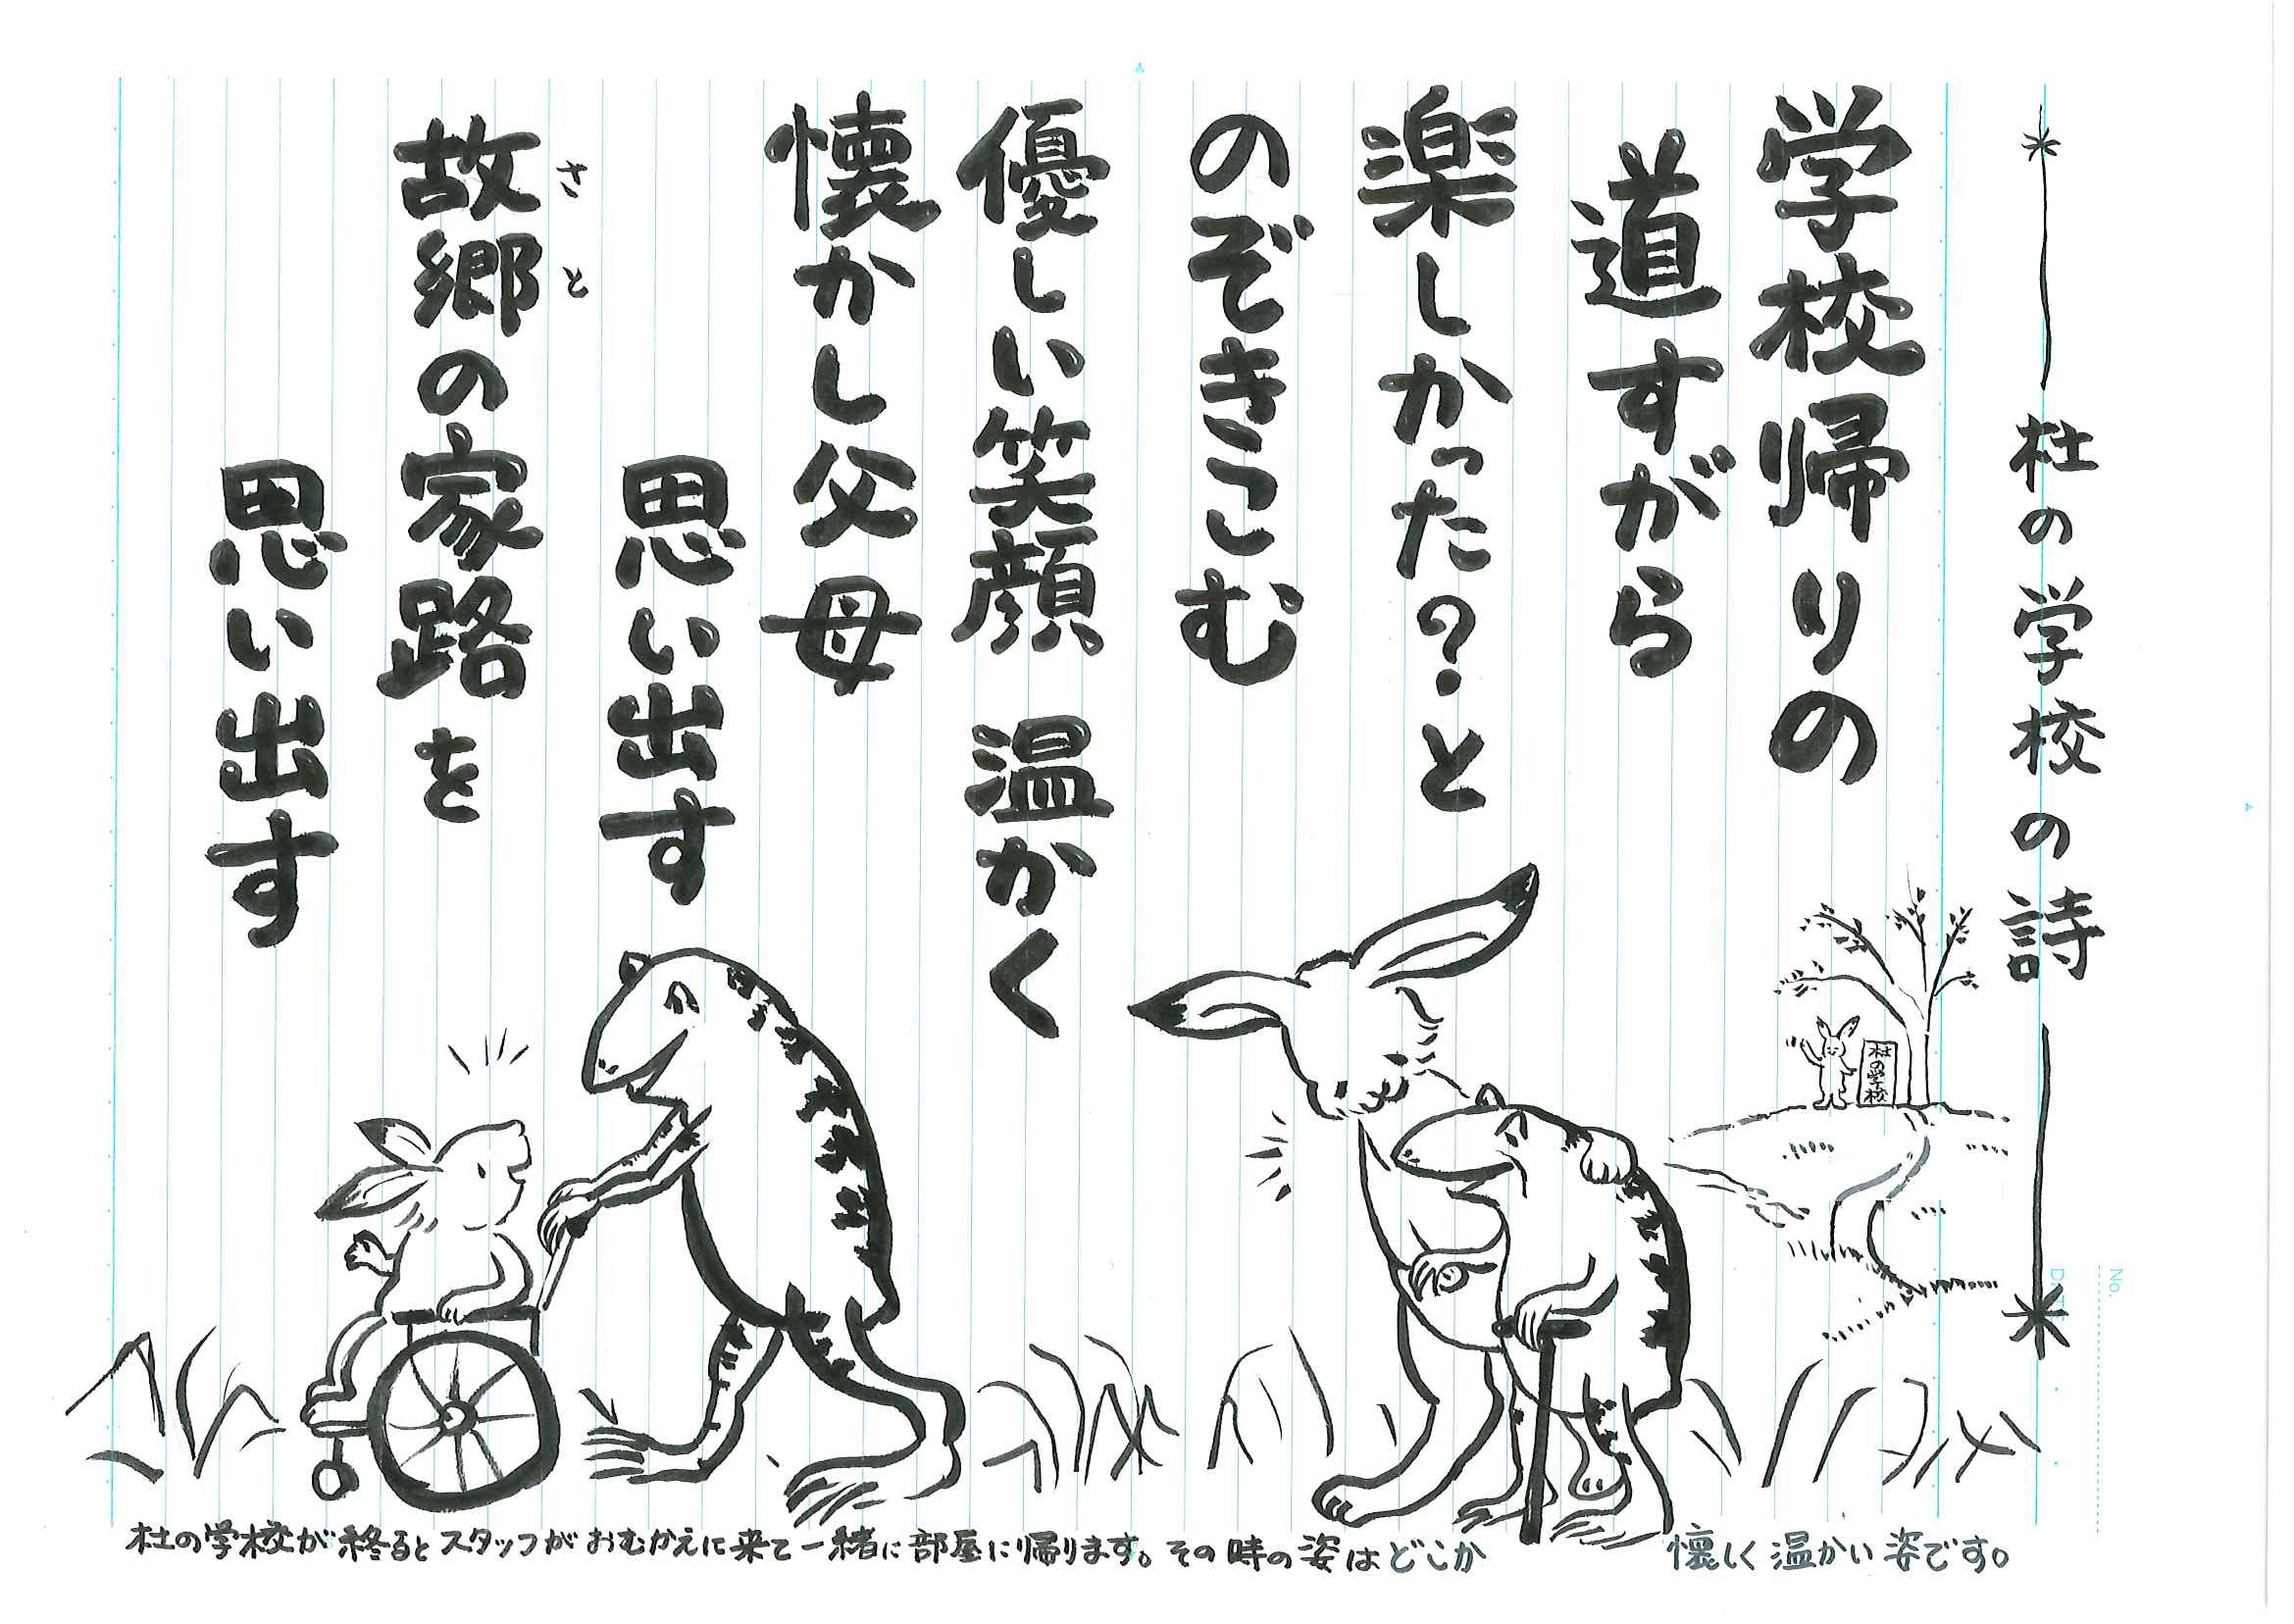 杜の学校の詩
学校帰りの
道すがら
楽しかった？と
のぞきこむ
優しい笑顔 温かく
懐かし父母
思い出す
故郷の家路を
さと
思い出す
杜の学校
杜の学校が終るとスタッフがおむかえに来て一緒に部屋に帰ります。その時の姿はどこか 懐しく温かい姿です。
No.